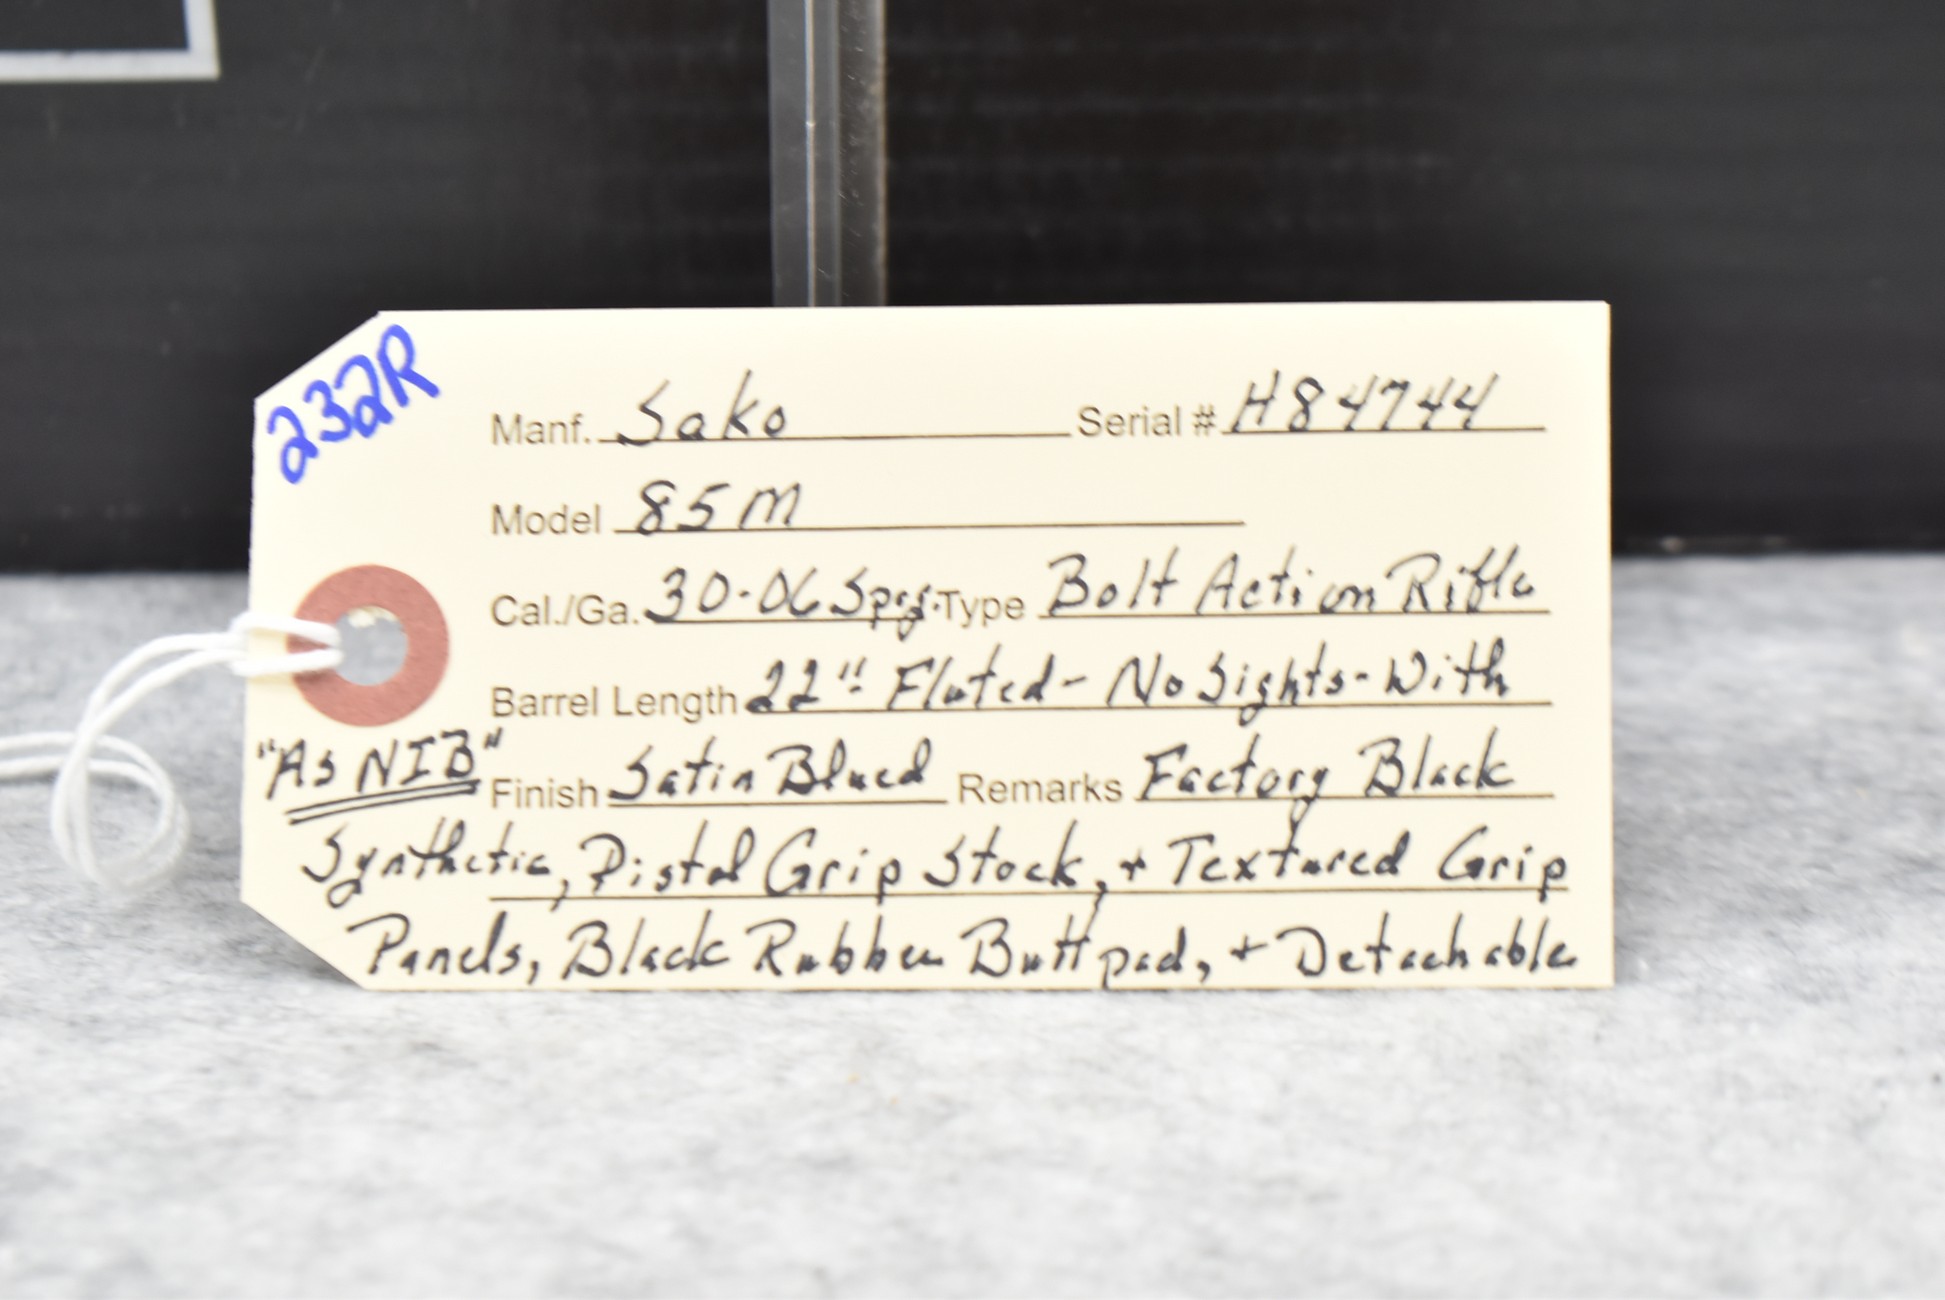 232R
Manf. Sako Serial # H84744
Model 85M
Cal./Ga. 30-06 Sprg. Type Bolt Action Rifle
Barrel Length 22" Fluted - No Sights - With
"As NIB"
Finish Satin Blued Remarks Factory Black
Synthetic, Pistol Grip Stock, + Textured Grip
Panels, Black Rubber Buttpad, + Detachable